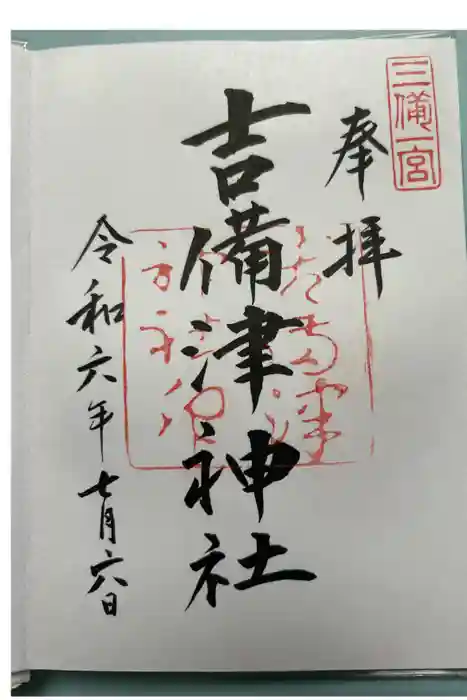 三備一宮
奉拝
吉備津神社
令和六年七月六日